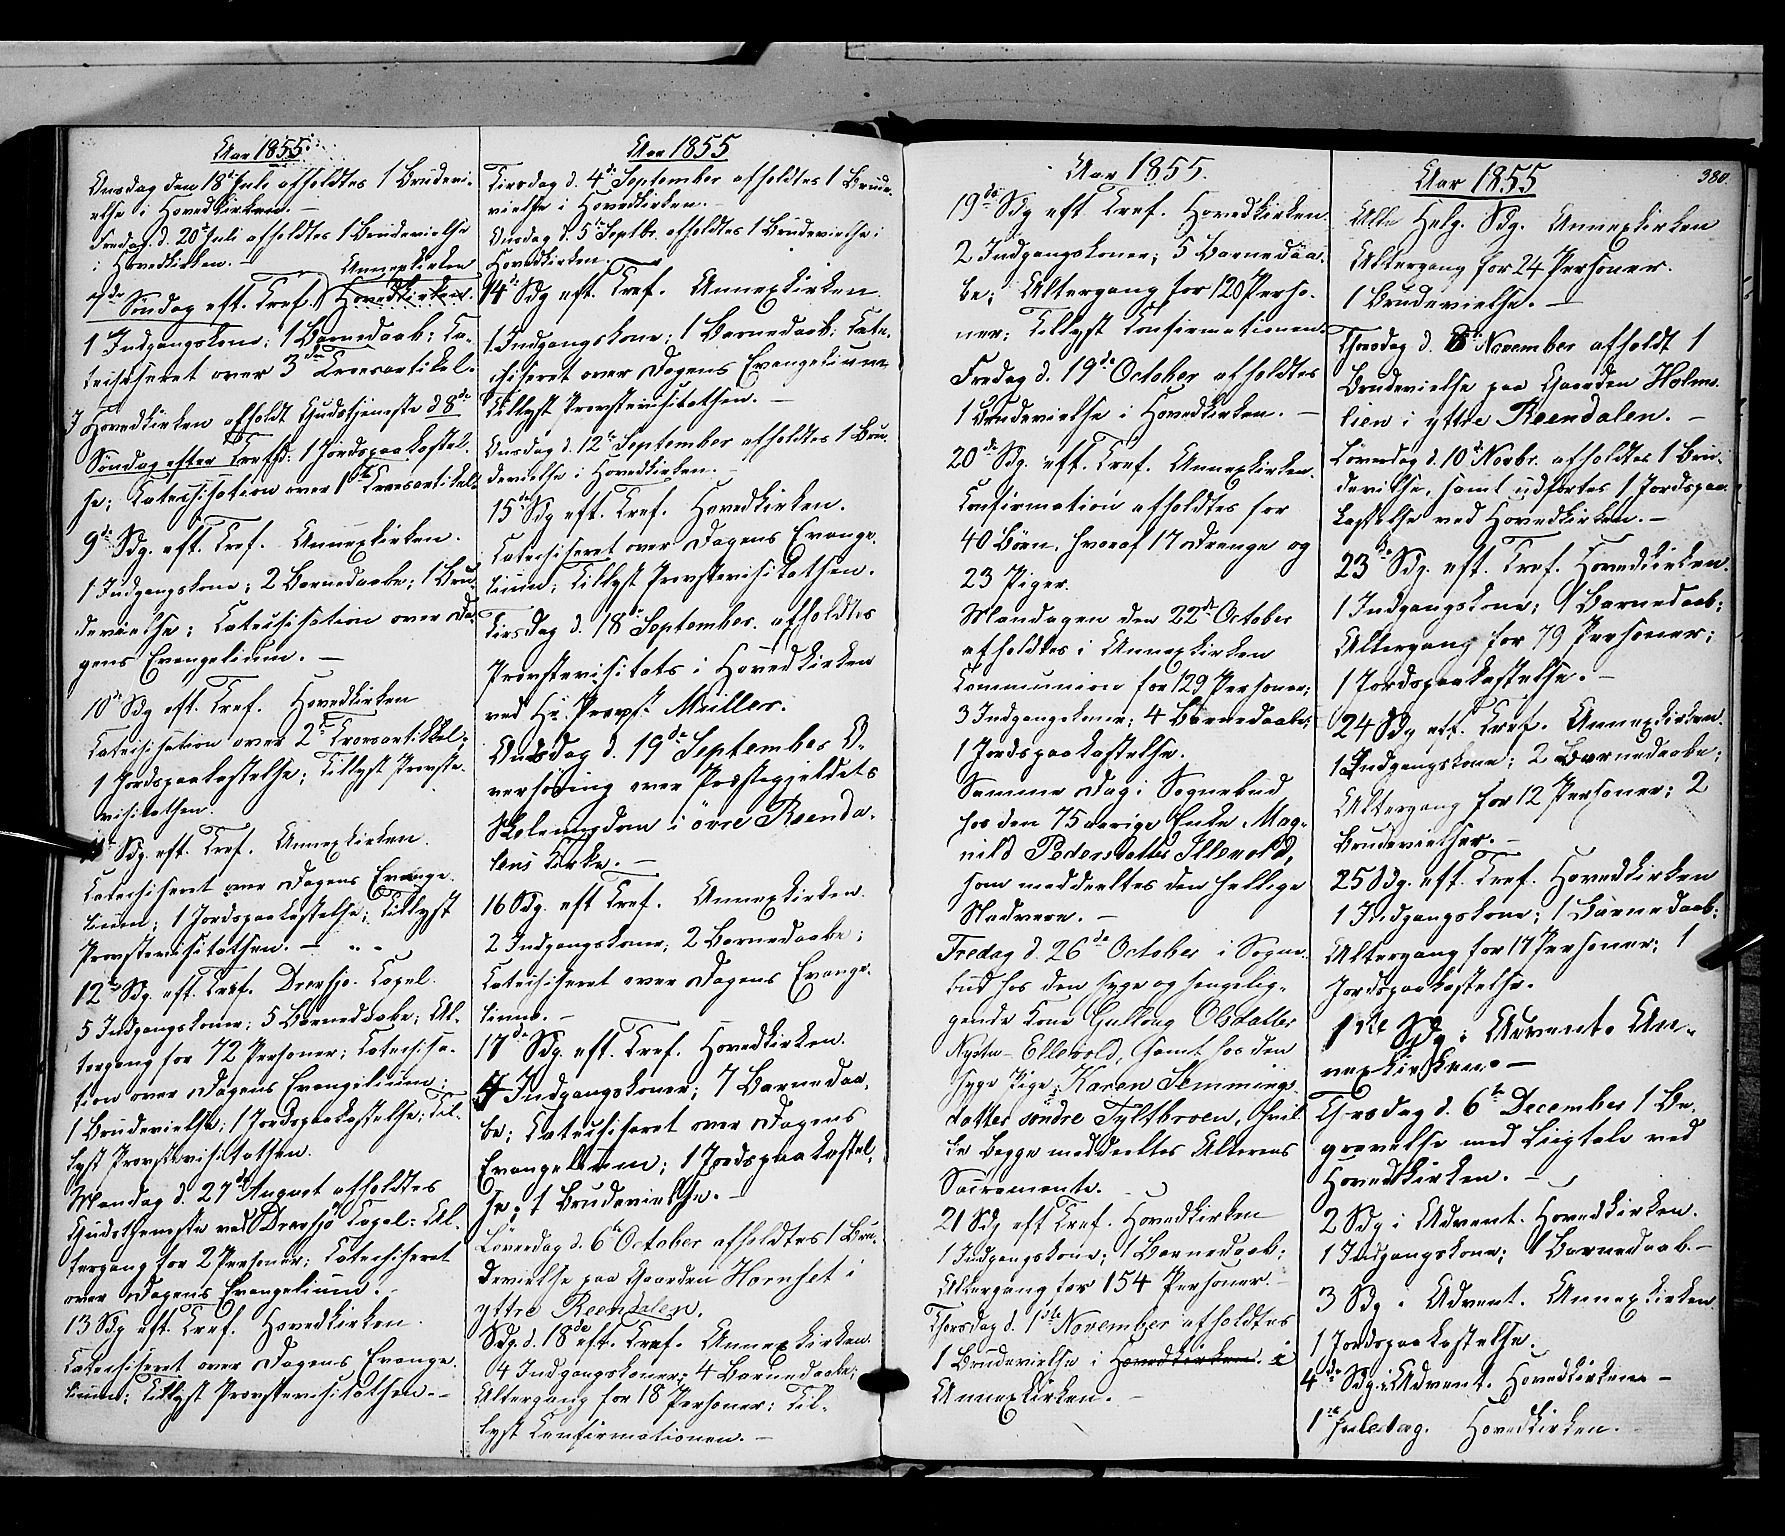 Aar 1855.
Onsdag den 18de Juli afholdtes 1 Brudevi-
else i Hovedkirken. —
Fredag d. 20de Juli afholdtes 1 Brudevielse
i Hovedkirken. —
Annexkirken
7de Søndag eft. Tref. Hovedkirken.
1 Indgangskone; 1 Barnedaab; Ca-
techiseret over 3die Troesartikel.
I Hovedkirken afholdt Gudstjeneste d 8de
Søndag efter Trefd: 1 Jordspaakastel-
se; Catechisation over 1ste Troesartikel.
9de Sdg. eft. Tref. Annexkirken.
1 Indgangskone; 2 Barnedaabe; 1 Bru-
devielse; Catechisation over Da-
gens Evangelium. —
10de Sdg eft. Tref. Hovedkirken
Catechisation over 2den Troesartikkel;
1 Jordspaakastelse; Tillyst Provste-
visitathsen.
11te Sdg. eft. Tref. Annexkirken.
Catechiseret over Dagens Evange-
lium; 1 Jordspaakastelse; Tillyst
Provstevisitathsen. —
12te Sdg. eft. Tref. Drevsjø Capel.
5 Indgangskoner; 5 Barnedaabe; Al-
tergang for 72 Personer; Catechisa-
tion over Dagens Evangelium;
1 Brudevielse; 1 Jordspaakastelse; Til-
lyst Provstevisitathsen.
Mandag d. 27de August afholdtes
Gudstheneste ved Drevsjø Capel: Al-
tergang for 2 Personer; Catechiseret
over Dagens Evangelium. —
13 Sdg eft. Tref. Hovedkirken.
Catechiseret over Dagens Evange-
lium; Tillyst Provstevisitathsen. —
Aar 1855
Tirsdag d. 4de September afholdtes 1 Brude-
vielse i Hovedkirken. —
Onsdag d. 5te Septbr. afholdtes 1 Brudevielse i
Hovedkirken. —
14de Sdg eft. Tref. Annexkirken.
1 Indgangskone; 1 Barnedaab; Cate-
chiseret over Dagens Evangelium
Tillyst Provstevisitathsen. —
Onsdag d. 12te September afholdtes 1 Bru-
devielse i Hovedkirken. —
15de Sdg eft. Tref. Hovedkirken.
Catechiseret over Dagens Evange-
lium; Tillyst Provstevisitathsen.
Tirsdag d. 18de September. afholdtes
Provstevisitats i Hovedkirken
ved Hr. Provst Müller.
Onsdag d. 19de September O-
verhøring over Præstegjeldets
Skoleungdom i øvre Reenda-
lens Kirke. —
16 Sdg. eft Tref. Annexkirken.
2 Indgangskoner; 2 Barnedaabe;
Catechiseret over Dagens Evange-
lium. —
17de Sdg. eft. Tref. Hovedkirken.
4 Indgangskoner; 7 Barnedaa-
be; Catechiseret over Dagens
Evangelium; 1 Jordspaakastel-
se; 1 Brudevielse. —
Løverdag d. 6te October afholdtes 1 Bru-
devielse paa Gaarden Hornset i
yttre Reendalen.
Sdg. d. 18de eft. Tref. Annexkirken.
4 Indgangskoner; 4 Barnedaabe;
Altergang for 18 Personer; Til-
lyst Confirmationen. —
Aar 1855.
19de Sdg eft Tref. Hovedkirken.
2 Indgangskoner; 5 Barnedaa-
be; Altergang for 120 Perso-
ner; Tillyst Confirmationen.
Fredag d. 19de October afholdtes
1 Brudevielse i Hovedkirken. —
20de Sdg. eft. Tref. Annexkirken.
Confirmation afholdtes for
40 Børn, hvoraf 17 Drenge og
23 Piger.
Mandagen den 22de October
afholdtes i Annexkirken
Communion for 129 Personer;
3 Indgangskoner; 4 Barnedaabe;
1 Jordspaakastelse.
Samme Dag i Sognebud
hos den 75 aarige Enke Mag-
nild Pedersdatter Illevold,
som meddeeltes den hellige
Nadvere. —
Fredag d. 26de October i Sogne-
bud hos den syge og sengelig-
gende Kone Gullaug Olsdatter
Nystu-Ellevold, samt hos den
syge Pige, Karen Semmings-
datter søndre Fyltbroen, hvil-
ke begge meddeeltes Alterens
Sacramente.
21 Sdg eft Tref. Hovedkirken
1 Indgangskone; 1 Barnedaab;
Altergang for 154 Personer. —
Thorsdag d. 1ste November afholdtes
1 Brudevielse i Hovedkirken. i
Annexkirken. —
Aar 1855
380.
Alle Helg. Sdg. Annexkirken
Altergang for 24 Personer.
1 Brudevielse. —
Thorsdag d. 8de November afholdt 1
Brudevielse paa Gaarden Holm-
lien i yttre Reendalen. —
Løverdag d. 10de Novbr. afholdtes 1 Bru-
devielse, samt udførtes 1 Jordspaa-
kastelse ved Hovedkirken. —
23de Sdg. eft. Tref. Hovedkirken.
1 Indgangskone; 1 Barnedaab;
Altergang for 79 Personer;
1 Jordspaakastelse. —
24 Sdg eft. Tref. Annexkirken.
1 Indgangskone; 2 Barnedaabe;
Altergang for 12 Personer; 2
Brudevielser. —
25 Sdg. eft. Tref. Hovedkirken
1 Indgangskone; 1 Barnedaab;
Altergang for 17 Personer; 1
Jordspaakastelse.
1ste Sdg i Advent. An-
nexkirken. —
Thorsdag d. 6te December 1 Be-
gravelse med Liigtale ved
Hovedkirken. —
2 Sdg i Advent. Hovedkirken.
1 Indgangskone; 1 Barnedaab. —
3 Sdg i Advent. Annexkirken.
1 Jordspaakastelse.
4de Sdg i Advent. Hovedkirken. —
1ste Juledag. Hovedkirken.